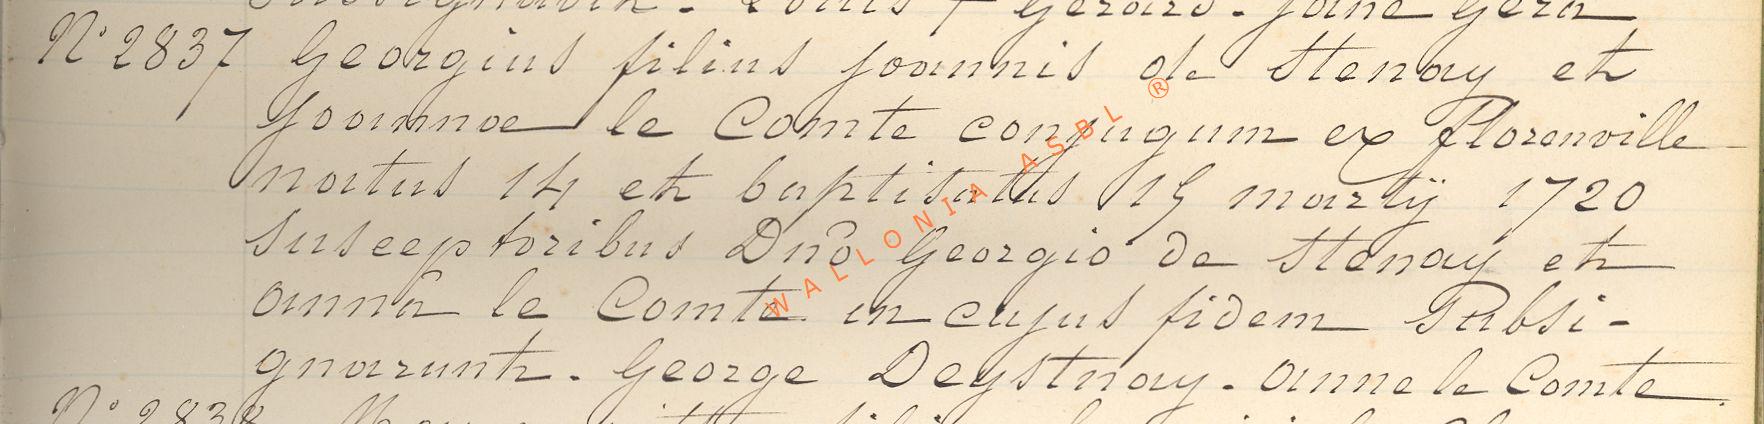 Louis + Gerard. Jane Gera
N° 2837 Georgius filius Joannis de Stenay et
Joannae le Comte conjugum ex florenville
natus 14 et baptisatus 15 martÿ 1720
susceptoribus Dno Georgio de Stenay et
anna le Comte in cujus fidem subsi-
gnarunt. George Deystnay. anne le Comte
N° 2838
WALLONIA ASBL ®